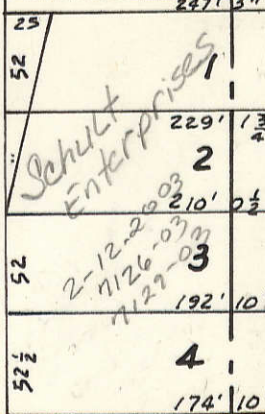 247' 3"
25
52
1
Schult
Enterprises
229' 1 3/4
2
210' 0 1/2
2-12-2003
7126-03
7129-03
52
3
192' 10
52 1/2
4
174' 10